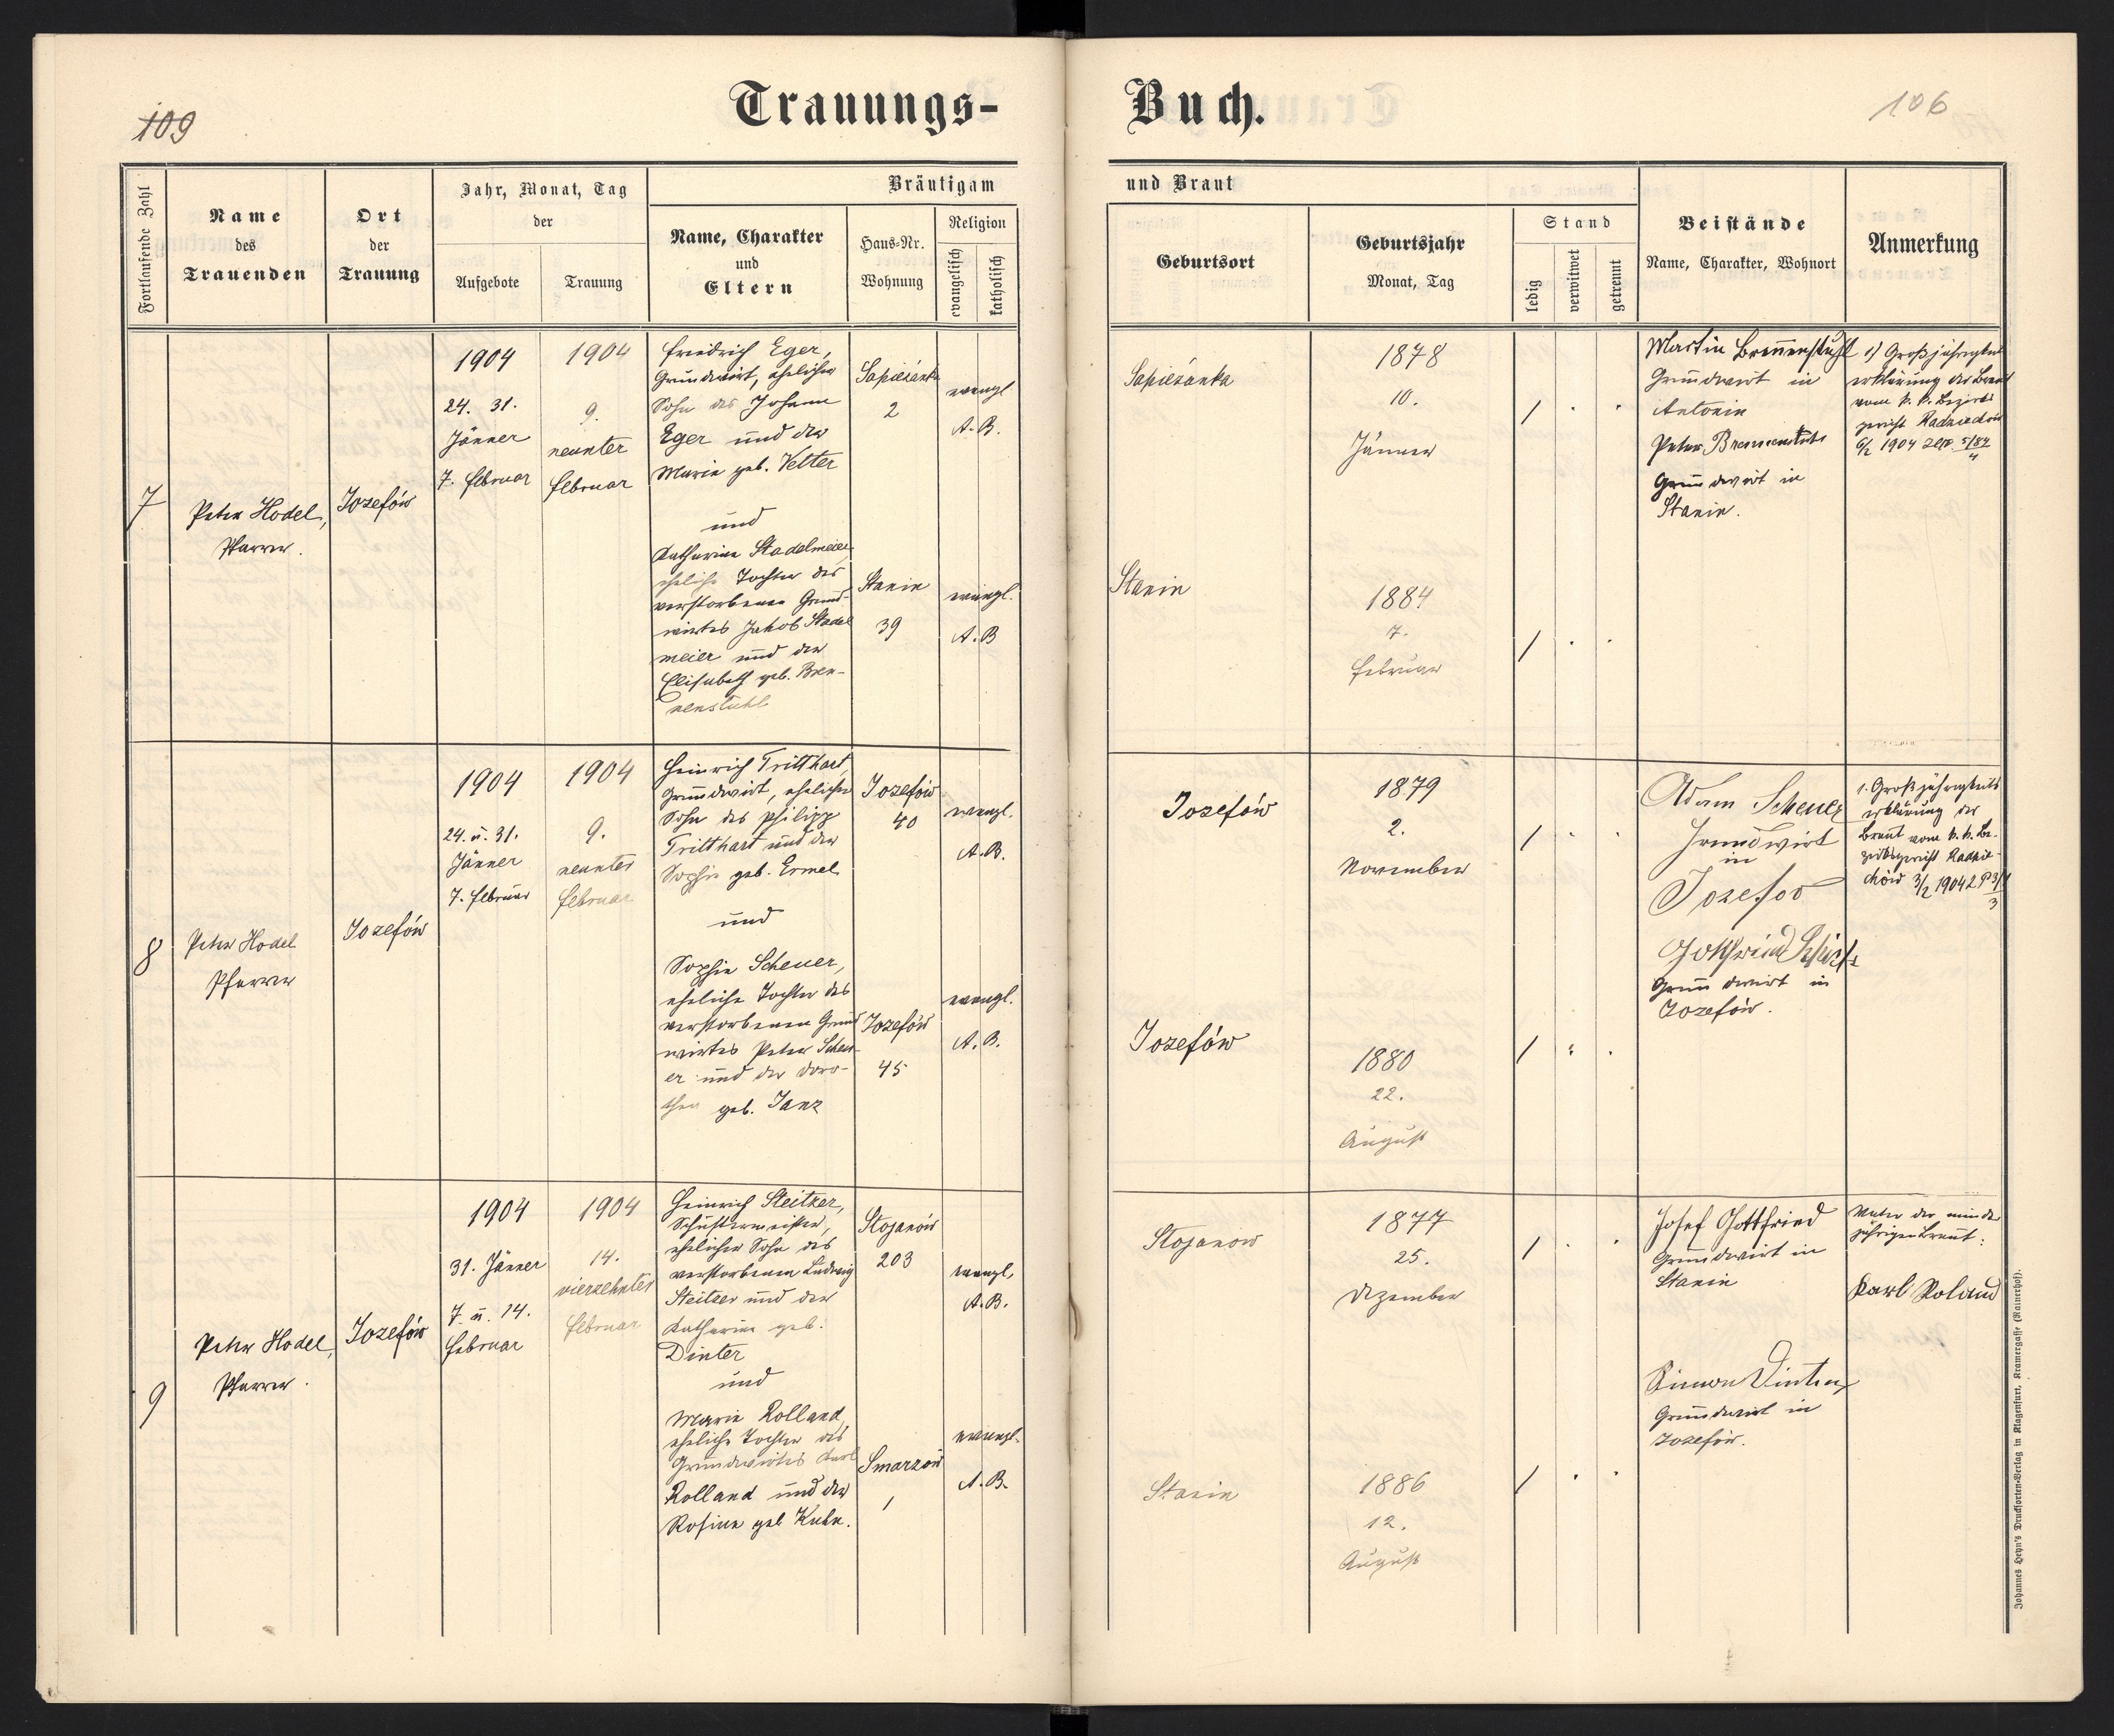 109
Trauungs-
Buch.
106
Fortlaufende Zahl
Name
des
Trauenden
Ort
der
Trauung
Jahr, Monat, Tag
der
Aufgebote
Trauung
Bräutigam
Name, Charakter
und
Eltern
Haus-Nr.
Wohnung
Religion
evangelisch
katholisch
und Braut
Geburtsort
Geburtsjahr
Monat, Tag
Stand
ledig
verwitwet
getrennt
Beistände
Name, Charakter, Wohnort
Anmerkung
7
Peter Hodel,
Pfarrer.
Jozefów
1904
24. 31.
Jänner
7. Februar
1904
9.
neunter
Februar
Friedrich Eger,
Grundwirt, ehelicher
Sohn des Johann
Eger und der
Marie geb. Vetter
und
Katharina Stadelmeier
eheliche Tochter des
verstorbenen Grund-
wirtes Jakob Stadel
meier und der
Elisabeth geb. Bren-
nenstuhl
Sapiezanka
2
Stanin
39
evangl
A. B.
evangl.
A. B
Sapiezanka
Stanin
1878
10.
Jänner
1884
7.
Februar
/ . .
/ . .
Martin Brennenstuhl
Grundwirt in
Antonin
Peter Brennenstuhl
Grundwirt in
Stanin.
1) Großjährigkeits
erklärung der Braut
vom k. k. Bezirks
gericht
1904
8
Peter Hodel
Pfarrer
Jozefów
1904
24. u. 31.
Jänner
7. Februar
1904
9.
neunter
Februar
Heinrich Tritthart,
Grundwirt, ehelicher
Sohn des Philipp
Tritthart und der
Sophie geb. Ermel
und
Sophie Scheuer,
eheliche Tochter des
verstorbenen Grund
wirtes Peter Scheu-
er und der Doro-
thea geb. Janz
Jozefów
40
Jozefów
45
evangl.
A. B.
evangl.
A. B.
Jozefów
Jozefów
1879
2.
November
1880
22.
August
/ . .
/ . .
Adam Scheuer
Grundwirt
in
Josefov
Gottfried
Grundwirt in
Jozefów.
1. Großjährigkeits
erklärung der
Braut vom k. k. Be-
zirksgericht Radzie-
chów 3/2 1904
9
Peter Hodel,
Pfarrer.
Jozefów
1904
31. Jänner
7. u. 14.
Februar
1904
14.
vierzehnter
Februar
Heinrich Steitzer,
Schustermeister,
ehelicher Sohn des
verstorbenen Ludwig
Steitzer und der
Katharina geb.
Dinter
und
Marie Rolland,
eheliche Tochter des
Grundwirtes Karl
Rolland und der
Rosina geb Kuhn.
Stojanów
203
Smarzów
1
evangl.
A. B.
evangl.
A. B.
Stojanow
Stanin
1877
25.
Dezember
1886
12.
August
/ . .
/ . .
Josef Gottfried
Grundwirt in
Stanin
Simon Dinter
Grundwirt in
Jozefów.
Vater der minder
jährigen Braut:
Karl Roland
Johannes Heyn's Drucksorten-Verlag in Klagenfurt, Kramergasse (Rainerhof).